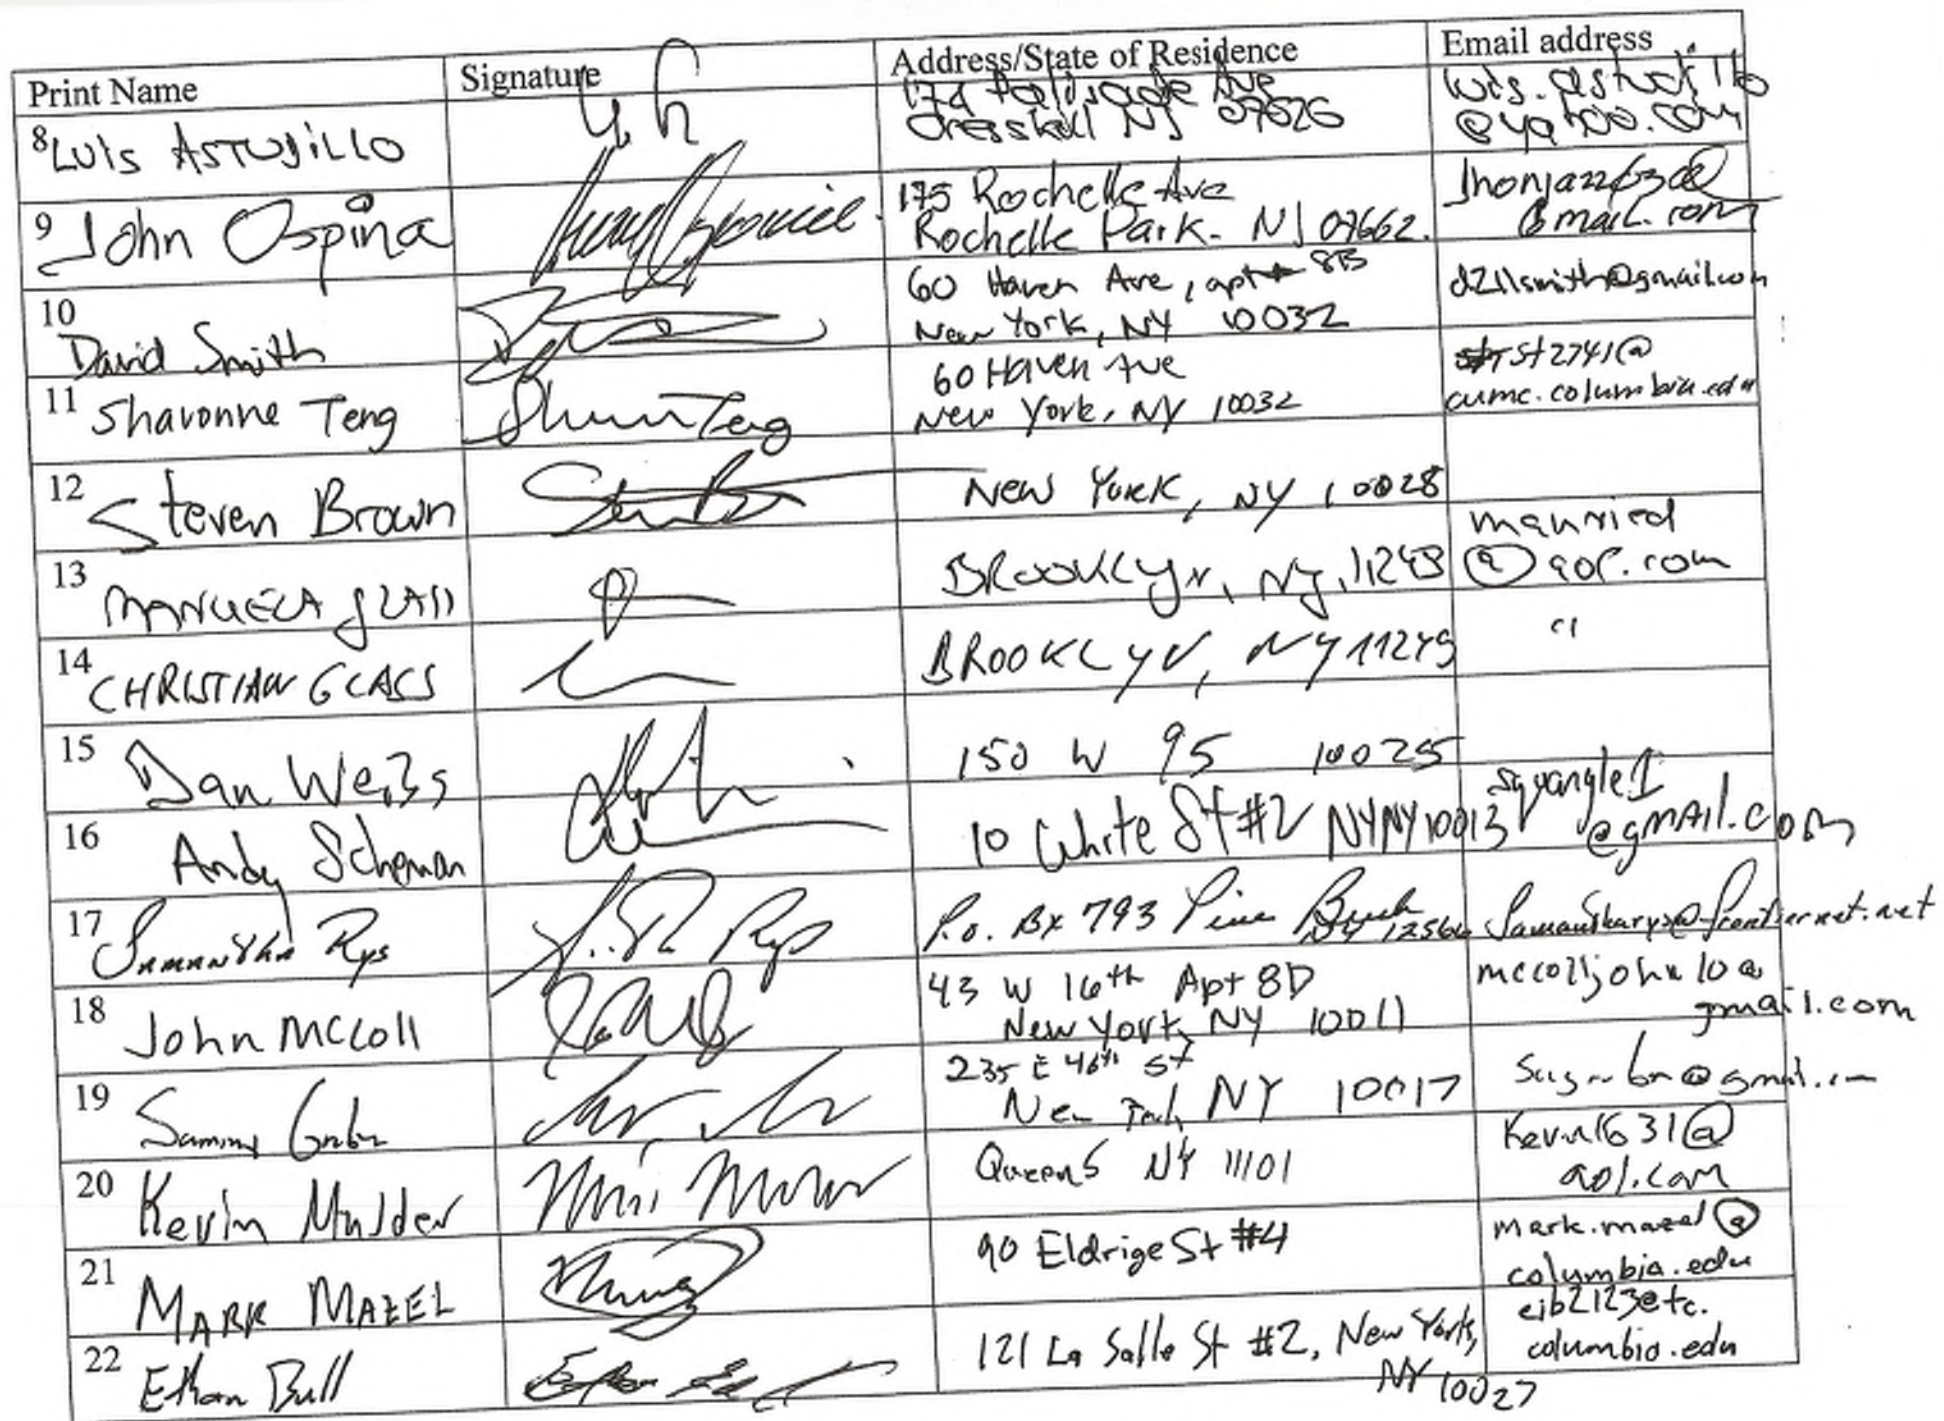 Print Name Signature Address/State of Residence Email address
8 Luis Astudillo 174 Palisade Ave
Cresskill NJ 07626 luis.astudillo
@yahoo.com
9 John Ospina 175 Rochelle Ave
Rochelle Park. NJ 07662. Jhonjazz63@
Gmail.com
10
David Smith 60 Haven Ave, apt 8B
New York, NY 10032 d211smith@gmail.com
11 Shavonne Teng Teng 60 Haven Ave
New York, NY 10032 st2741@
cumc.columbia.edu
12 Steven Brown New York, NY 10028
13 MANUELA GLASS BROOKLYN, NY, 11249 manried
@aol.com
14 CHRISTIAN GLASS BROOKLYN, NY 11249 "
15 Dan Weiss 150 W 95 10025
16 Andy Scheman 10 White St #2 NY NY 10013 squangle1
@gmail.com
17 Samantha Rys Rys P.O. Bx 793 Pine Bush
NY 12566 Samantharys@frontiernet.net
18 John McColl 43 W 16th Apt 8D
New York, NY 10011 mccolljohn10@
gmail.com
19 Sammy 235 E 46th St
New York, NY 10017
20 Kevin Mulder Queens NY 11101 Kevin1631@
aol.com
21 MARK MAZEL 90 Eldrige St #4 mark.mazel@
columbia.edu
22 Ethan Bull Ethan 121 La Salle St #2, New York,
NY 10027 ejb2123@tc.
columbia.edu